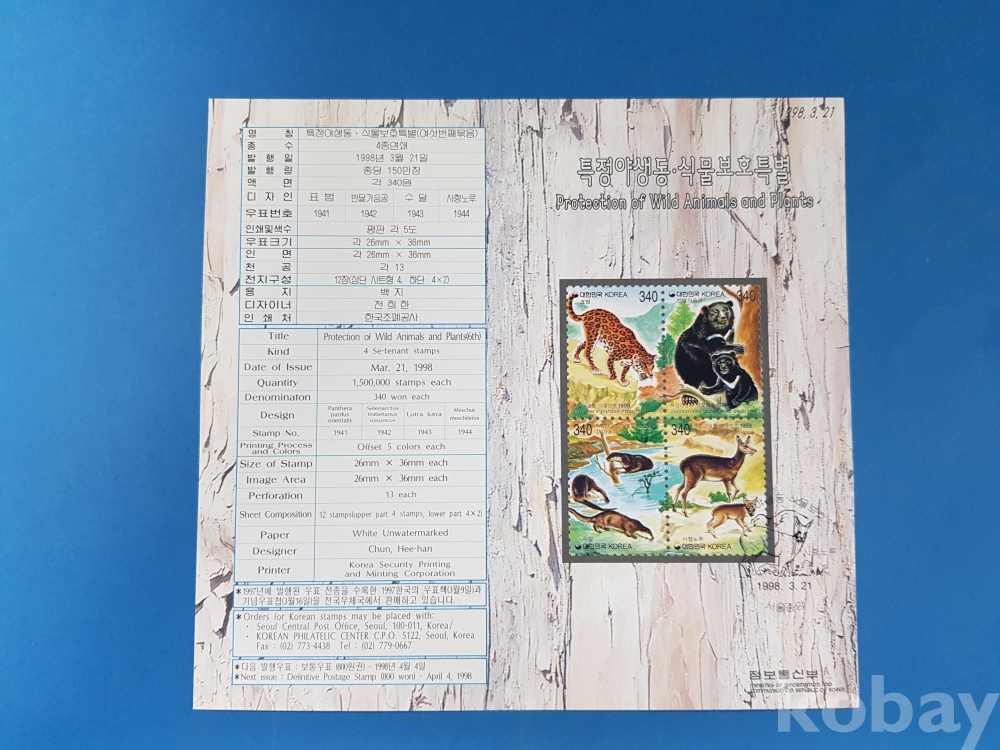 1998. 3. 21
명 칭 특정야생동·식물보호특별(여섯번째묶음)
종 수 4종연쇄
발 행 일 1998년 3월 21일
발 행 량 종당 150만장
액 면 각 340원
디 자 인 표 범 반달가슴곰 수 달 사향노루
우표번호 1941 1942 1943 1944
인쇄및색수 평판 각 5도
우표크기 각 26mm × 36mm
인 면 각 26mm × 36mm
천 공 각 13
전지구성 12장(상단 시트형 4, 하단 4×2)
용 지 백 지
디자이너 전 희 한
인 쇄 처 한국조폐공사
Title Protection of Wild Animals and Plants(6th)
Kind 4 Se-tenant stamps
Date of Issue Mar. 21, 1998
Quantity 1,500,000 stamps each
Denominaton 340 won each
Design Panthera pardus orientalis Selenarctos thibetanus ussuricus Lutra lutra Moschus moschiferus
Stamp No. 1941 1942 1943 1944
Printing Process and Colors Offset 5 colors each
Size of Stamp 26mm × 36mm each
Image Area 26mm × 36mm each
Perforation 13 each
Sheet Composition 12 stampslupper part 4 stamps, lower part 4×2)
Paper White Unwatermarked
Designer Chun, Hee-han
Printer Korea Security Printing and Minting Corporation
*1997년에 발행된 우표 전종을 수록한 1997한국의 우표책(3월9일)과
기념우표첩(3월16일)을 전국우체국에서 판매하고 있습니다.
*Orders for Korean stamps may be placed with:
· Seoul Central Post Office, Seoul, 100-011, Korea/
· KOREAN PHILATELIC CENTER C.P.O. 5122, Seoul, Korea
Fax : (02) 773-4438 Tel : (02) 779-0667
*다음 발행우표 : 보통우표 (800원권) - 1998년 4월 4일
*Next issue : Definitive Postage Stamp (800 won) - April 4, 1998
특정야생동·식물보호특별
Protection of Wild Animals and Plants
대한민국 KOREA 340
표범
대한민국 KOREA 340
반달가슴곰
340
수달
대한민국 KOREA
340
사향노루
대한민국 KOREA
사향노루
1998. 3. 21
서울중앙
정보통신부
MINISTRY OF INFORMATION AND
COMMUNICATION REPUBLIC OF KOREA
kobay